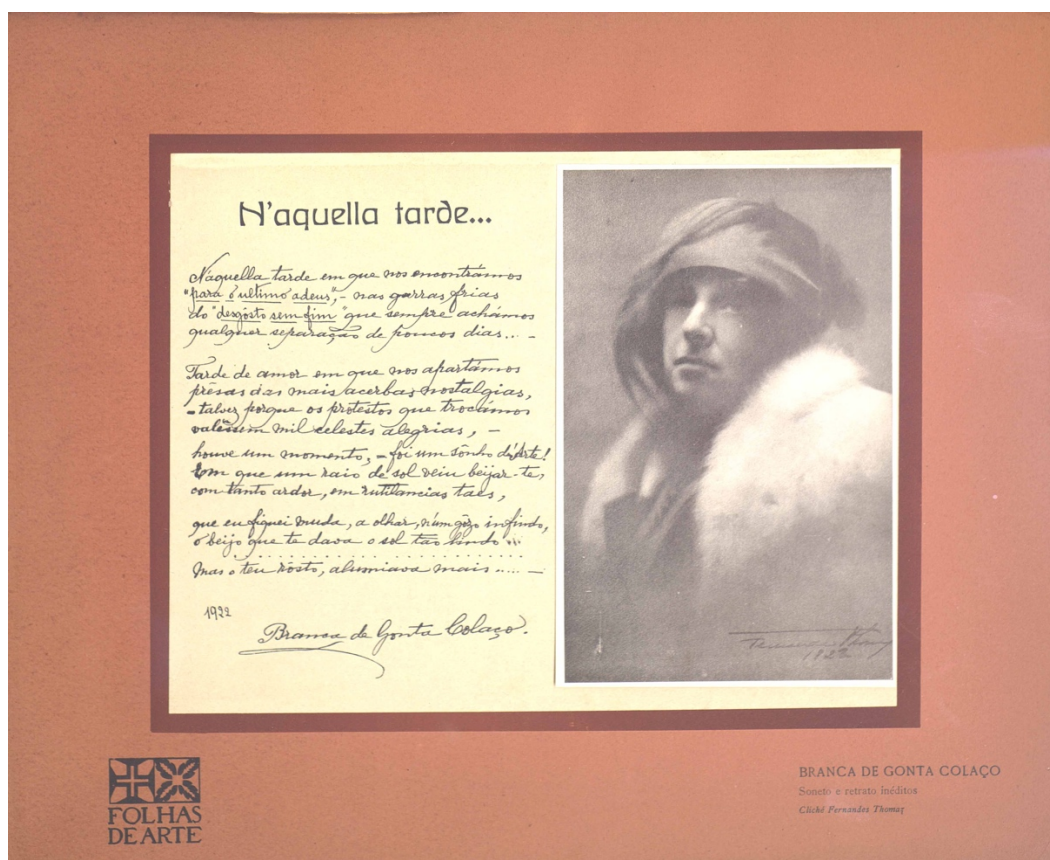 N'aquella tarde...
Naquella tarde em que nos encontrámos
"para o ultimo adeus", - nas garras frias
do "desgôsto sem fim" que sempre achámos
qualquer separação de poucos dias... -
Tarde de amor em que nos apartámos
prêsas das mais acerbas nostalgias,
- talvez porque os protestos que trocámos
valessem mil celestes alegrias, -
houve um momento, - foi um sônho d'Arte!
Em que um raio de sol veiu beijar-te,
com tanto ardor, em rutilancias taes,
que eu fiquei muda, a olhar, n'um gôzo infindo,
o beijo que te dava o sol tão lindo...
. . . . . . . . . . . . . . . . . . . . . . . .
Mas o teu rôsto, alumiava mais..... -
1922
Branca de Gonta Colaço.
1922
FOLHAS
DE ARTE
BRANCA DE GONTA COLAÇO
Soneto e retrato inéditos
Cliché Fernandes Thomaz